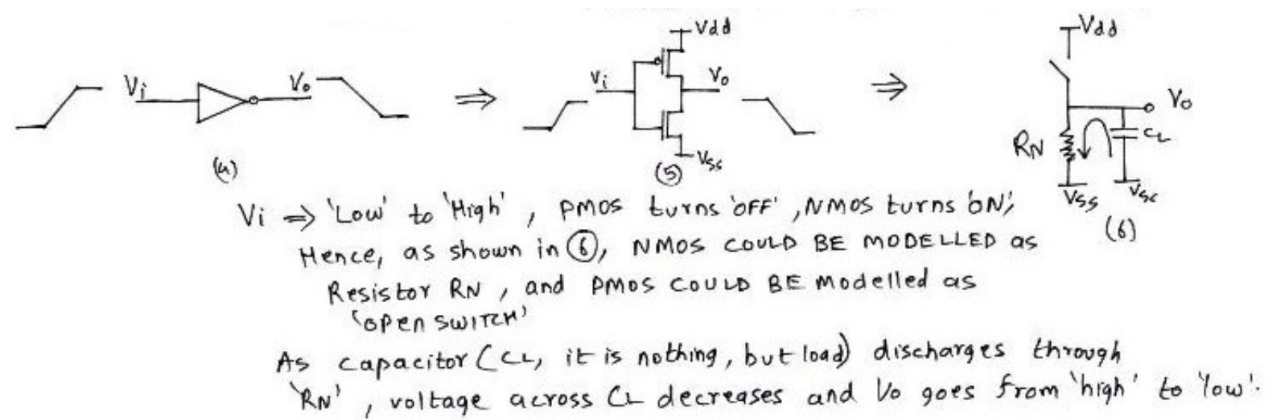 Vi Vo
(4)
Vi Vdd Vo Vss
(5)
Vdd Vo RN CL Vss Vss
(6)
Vi ⇒ 'Low' to 'High', PMOS turns 'OFF', NMOS turns 'ON',
Hence, as shown in (6), NMOS COULD BE MODELLED as
Resistor RN, and PMOS COULD BE Modelled as
'OPEN SWITCH'
As capacitor (CL, it is nothing, but load) discharges through
'RN', voltage across CL decreases and Vo goes from 'high' to 'low'.